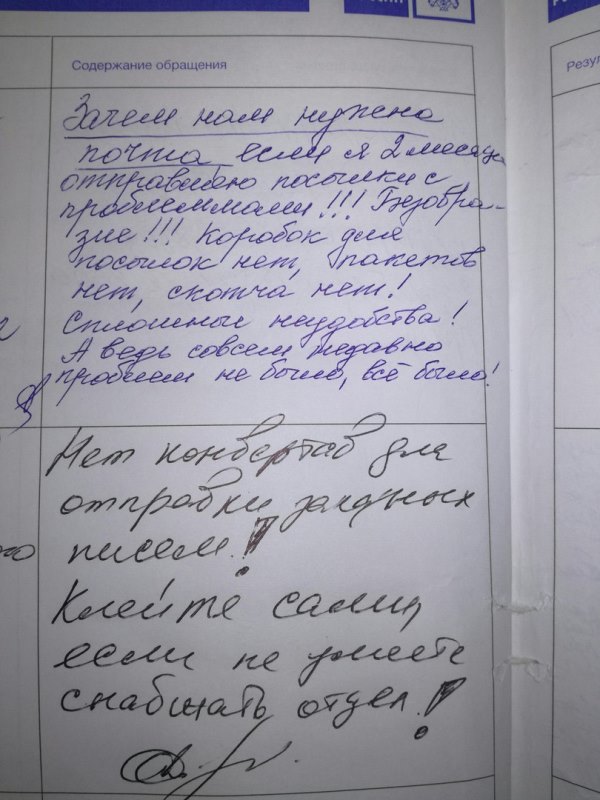 Содержание обращения
Резул
Зачем нам нужна
почта если я 2 месяца
отправляю посылки с
проблеммами!!! Безобра-
зие!!! Коробок для
посылок нет, пакетов
нет, скотча нет!
Сплошные неудобства!
А ведь совсем недавно
проблем не было, всё было!
Нет конвертов для
отправки заказных
писем!
Клейте сами,
если не умеете
снабжать отдел!